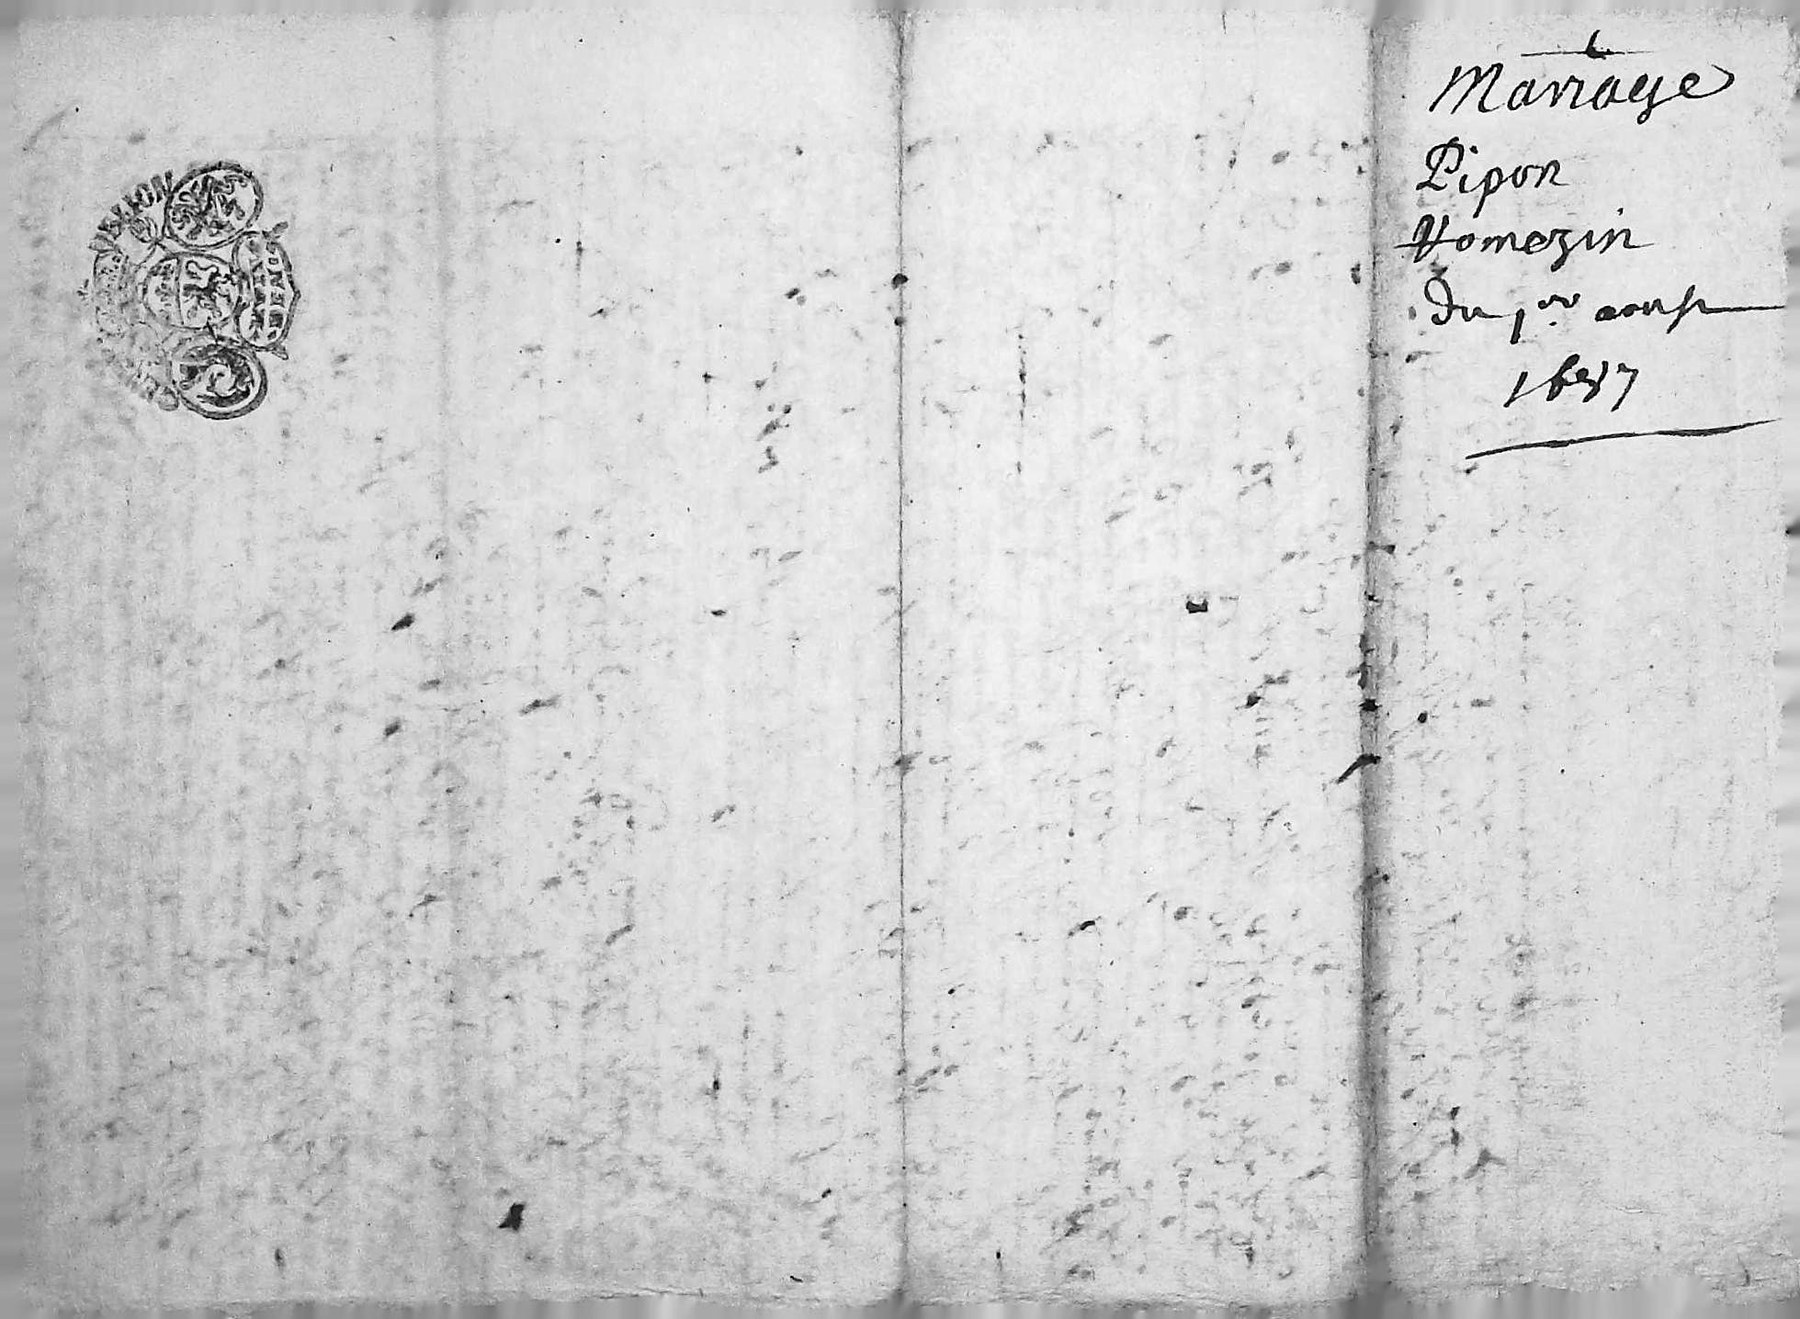 Mariage
Pipon
Vomezin
Du 1er aoust
1687